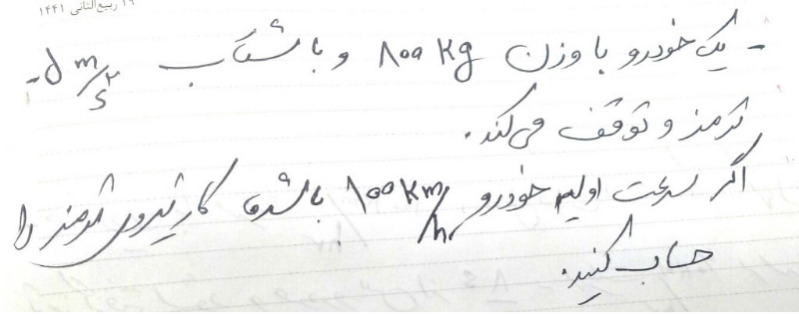 ۱۹ ربیع‌الثانی ۱۴۴۱
- یک خودرو با وزن ۸۰۰ kg و با شتاب -۵ m/s²
ترمز و توقف می‌کند.
اگر سرعت اولیه خودرو ۱۰۰ km/h باشد، کار نیروی ترمز را
حساب کنید.